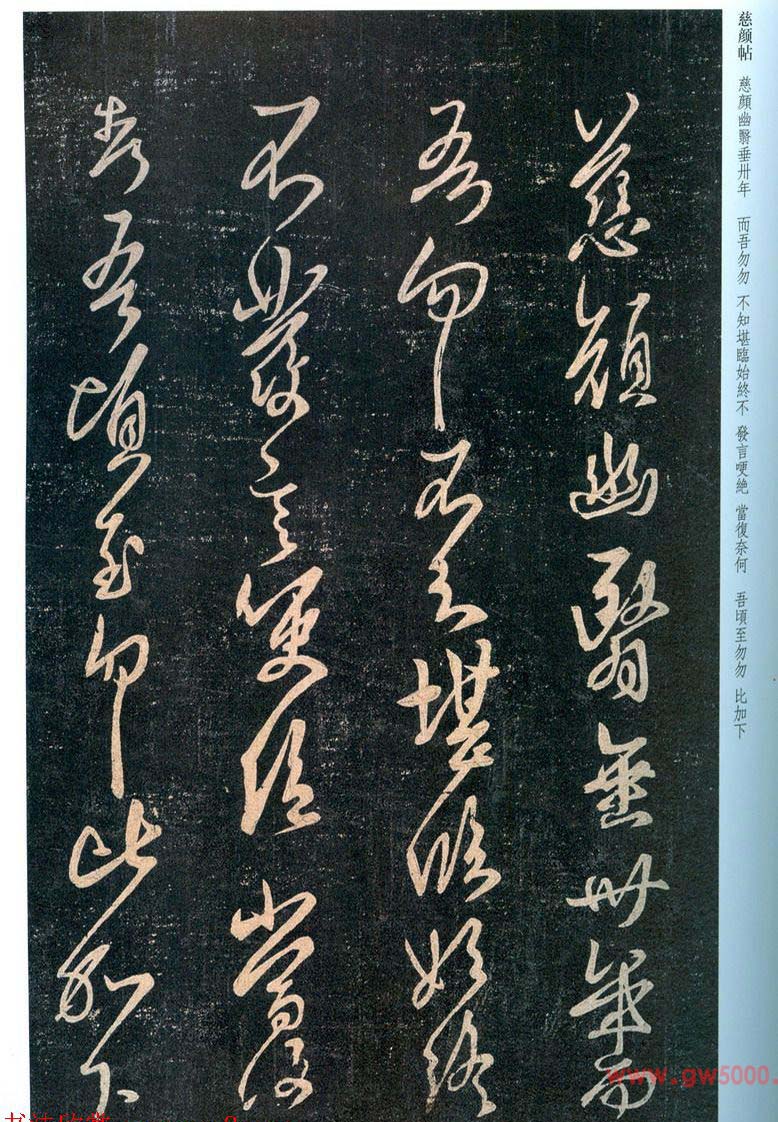 慈颜帖 慈顔幽翳垂卅年 而吾勿勿 不知堪臨始終不 發言哽絶 當復奈何 吾頃至勿勿 比加下
慈顔幽翳垂卅年而
吾勿勿不知堪臨始終
不發言哽絶當復
奈何吾頃至勿勿比加下
www.gw5000.